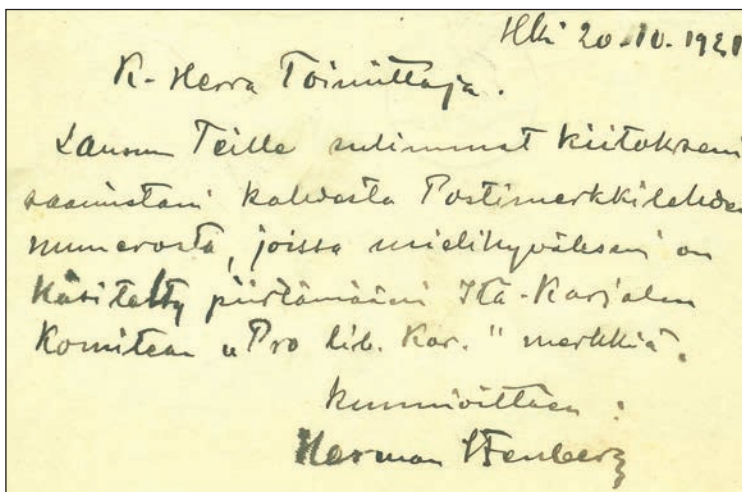 Hki 20-IV. 1921
K- Herra Toimittaja.
Lausun Teille sulimmat kiitokseni
saamistani kahdesta Postimerkkilehden
numerosta, joissa mielihyväkseni on
käsitelty piirtämääni Itä-Karjalan
Komitean „Pro lib. Kar." merkkiä.
kunnioittaen :
Herman Stenberg